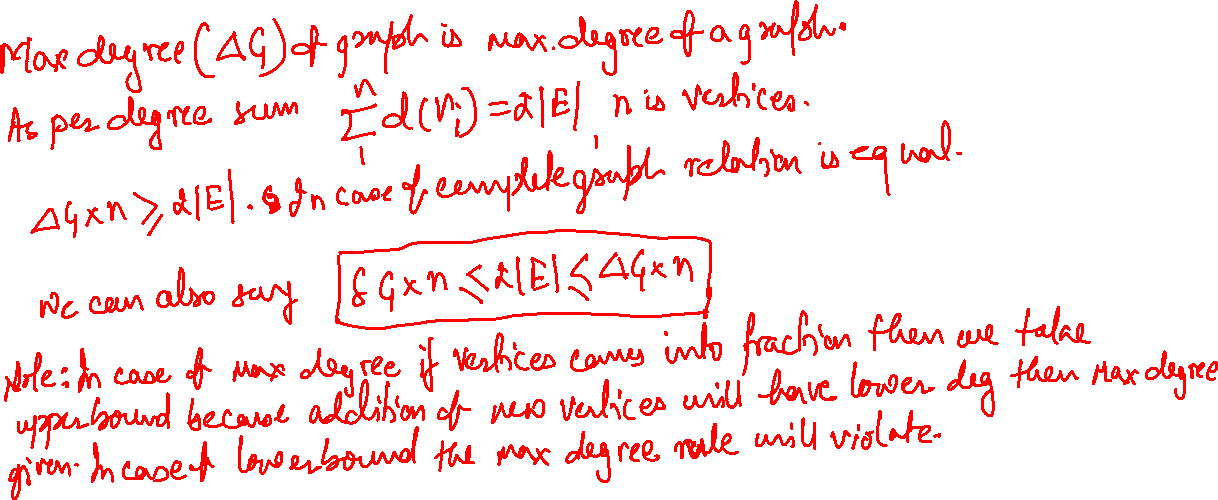 Max degree (ΔG) of graph is max. degree of a graph.
As per degree sum $\sum_{1}^{n} d(v_i) = 2|E|$, n is vertices.
ΔG×n ≥ 2|E|. In case of complete graph relation is equal.
We can also say δG×n ≤ 2|E| ≤ ΔG×n
Note: In case of max degree if vertices comes into fraction then we take
upperbound because addition of new vertices will have lower deg then Max degree
given. In case of lowerbound the max degree rule will violate.